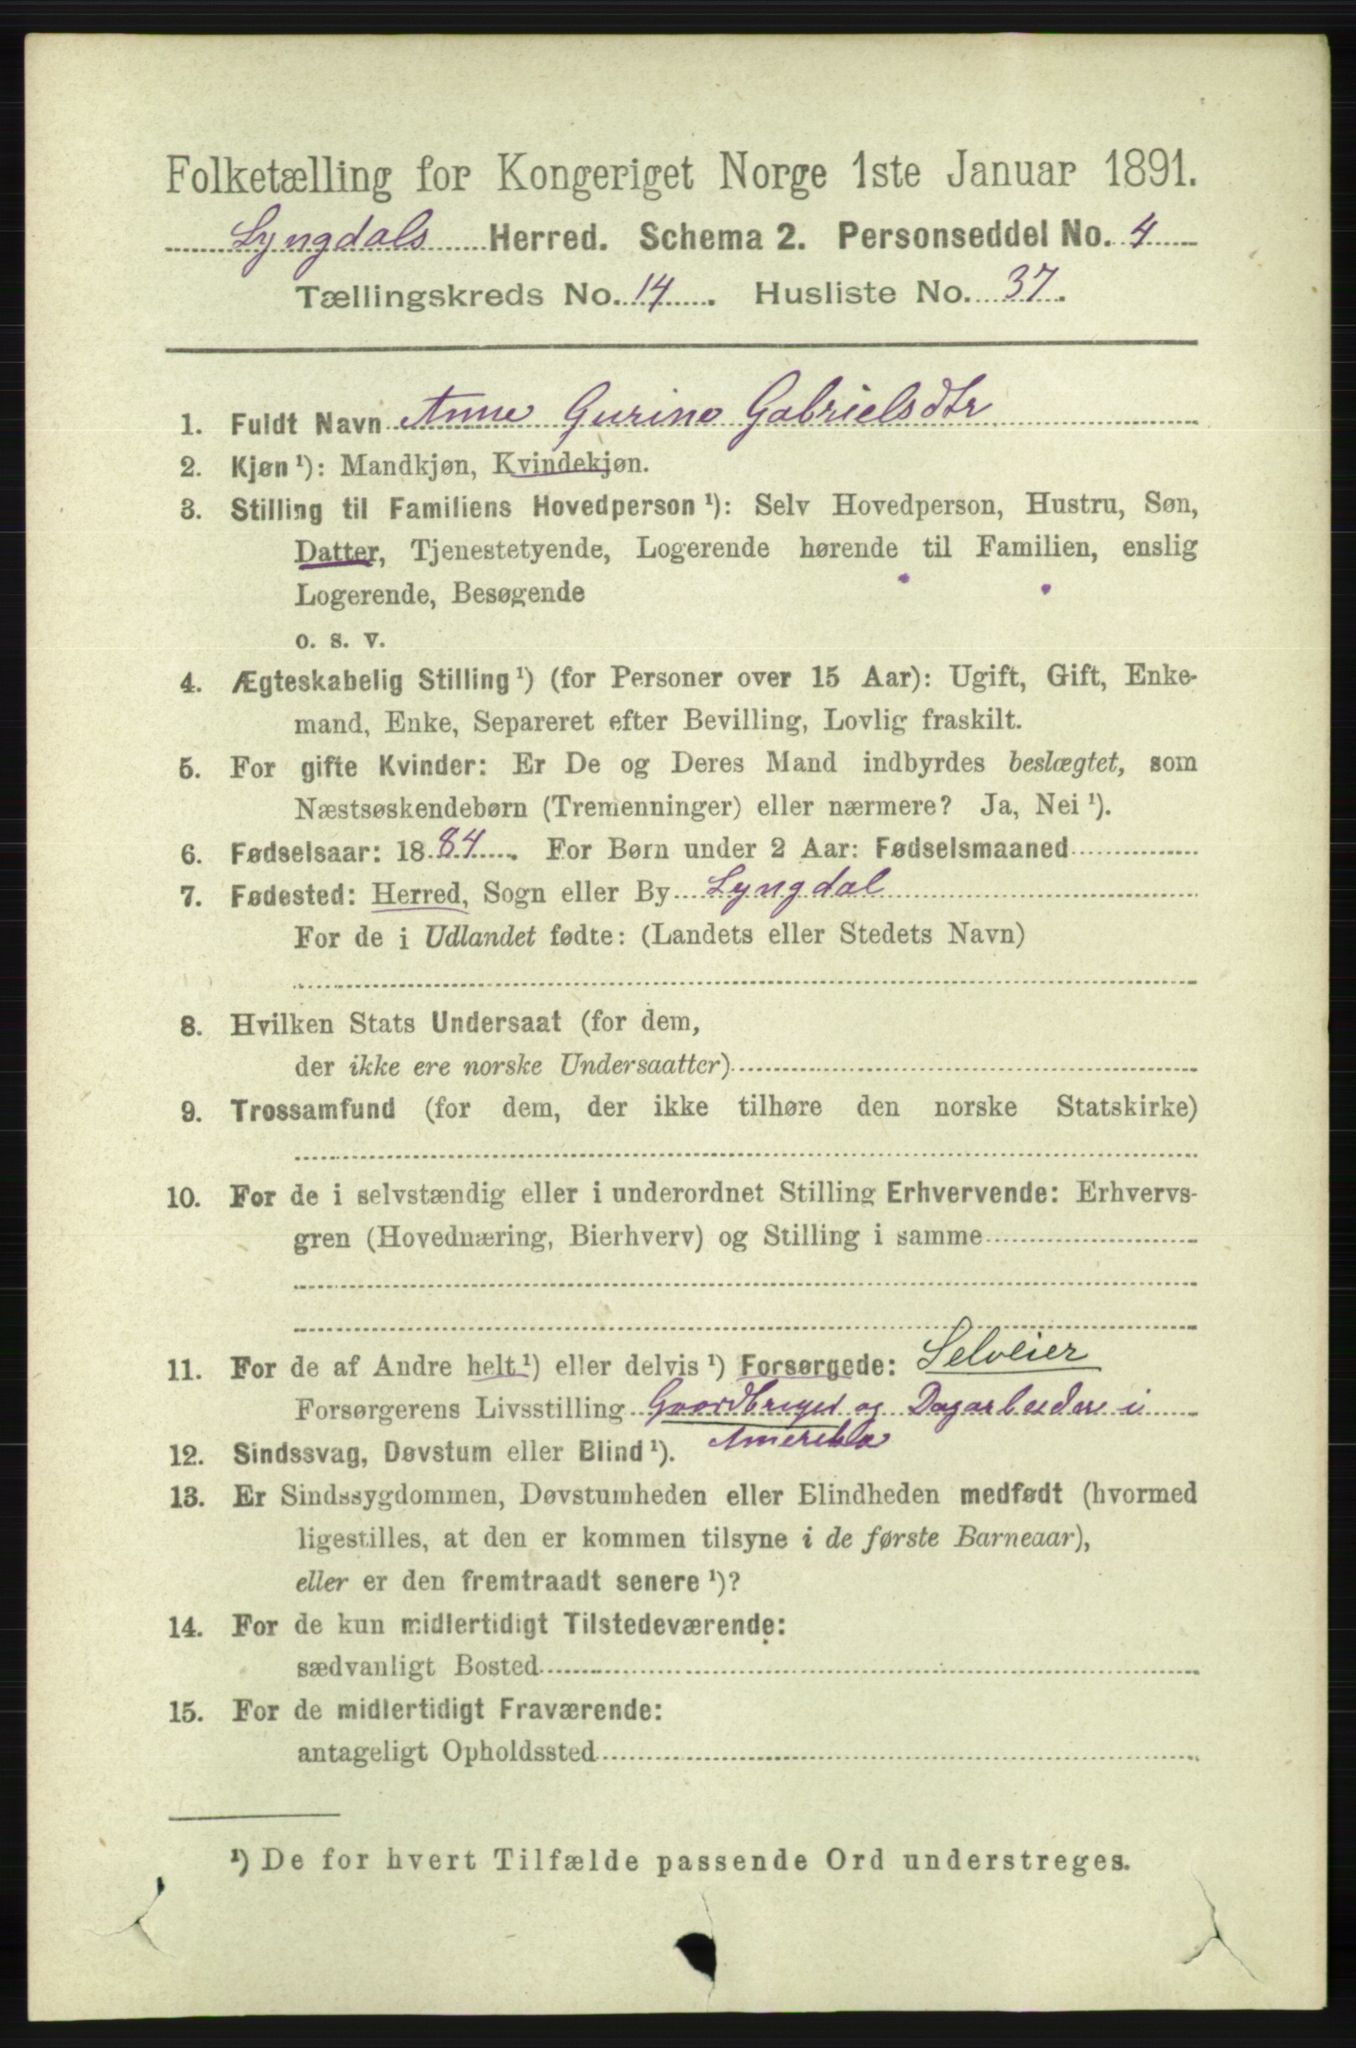 Folketælling for Kongeriget Norge 1ste Januar 1891.
Lyngdals Herred. Schema 2. Personseddel No. 4
Tællingskreds No. 14. Husliste No. 37.
1. Fuldt Navn Anne Gurine Gabrielsdtr
2. Kjøn ¹): Mandkjøn, Kvindekjøn.
3. Stilling til Familiens Hovedperson ¹): Selv Hovedperson, Hustru, Søn,
Datter, Tjenestetyende, Logerende hørende til Familien, enslig
Logerende, Besøgende
o. s. v.
4. Ægteskabelig Stilling ¹) (for Personer over 15 Aar): Ugift, Gift, Enke-
mand, Enke, Separeret efter Bevilling, Lovlig fraskilt.
5. For gifte Kvinder: Er De og Deres Mand indbyrdes beslægtet, som
Næstsøskendebørn (Tremenninger) eller nærmere? Ja, Nei ¹).
6. Fødselsaar: 1884. For Børn under 2 Aar: Fødselsmaaned
7. Fødested: Herred, Sogn eller By Lyngdal
For de i Udlandet fødte: (Landets eller Stedets Navn)
8. Hvilken Stats Undersaat (for dem,
der ikke ere norske Undersaatter)
9. Trossamfund (for dem, der ikke tilhøre den norske Statskirke)
10. For de i selvstændig eller i underordnet Stilling Erhvervende: Erhvervs-
gren (Hovednæring, Bierhverv) og Stilling i samme
11. For de af Andre helt ¹) eller delvis ¹) Forsørgede: Selveier
Forsørgerens Livsstilling Gaardbruger og Dagarbeider i
Amerika
12. Sindssvag, Døvstum eller Blind ¹).
13. Er Sindssygdommen, Døvstumheden eller Blindheden medfødt (hvormed
ligestilles, at den er kommen tilsyne i de første Barneaar),
eller er den fremtraadt senere ¹)?
14. For de kun midlertidigt Tilstedeværende:
sædvanligt Bosted
15. For de midlertidigt Fraværende:
antageligt Opholdssted
¹) De for hvert Tilfælde passende Ord understreges.